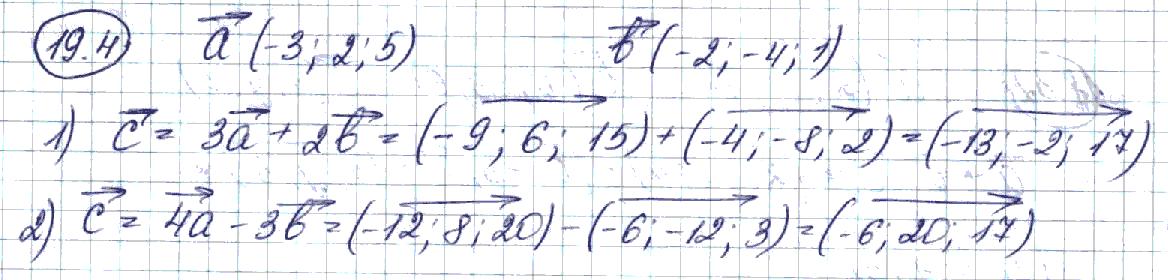 19.4 a⃗ (-3; 2; 5) b⃗ (-2; -4; 1)
1) c⃗ = 3a⃗ + 2b⃗ = (-9; 6; 15) + (-4; -8; 2) = (-13; -2; 17)
2) c⃗ = 4a⃗ - 3b⃗ = (-12; 8; 20) - (-6; -12; 3) = (-6; 20; 17)